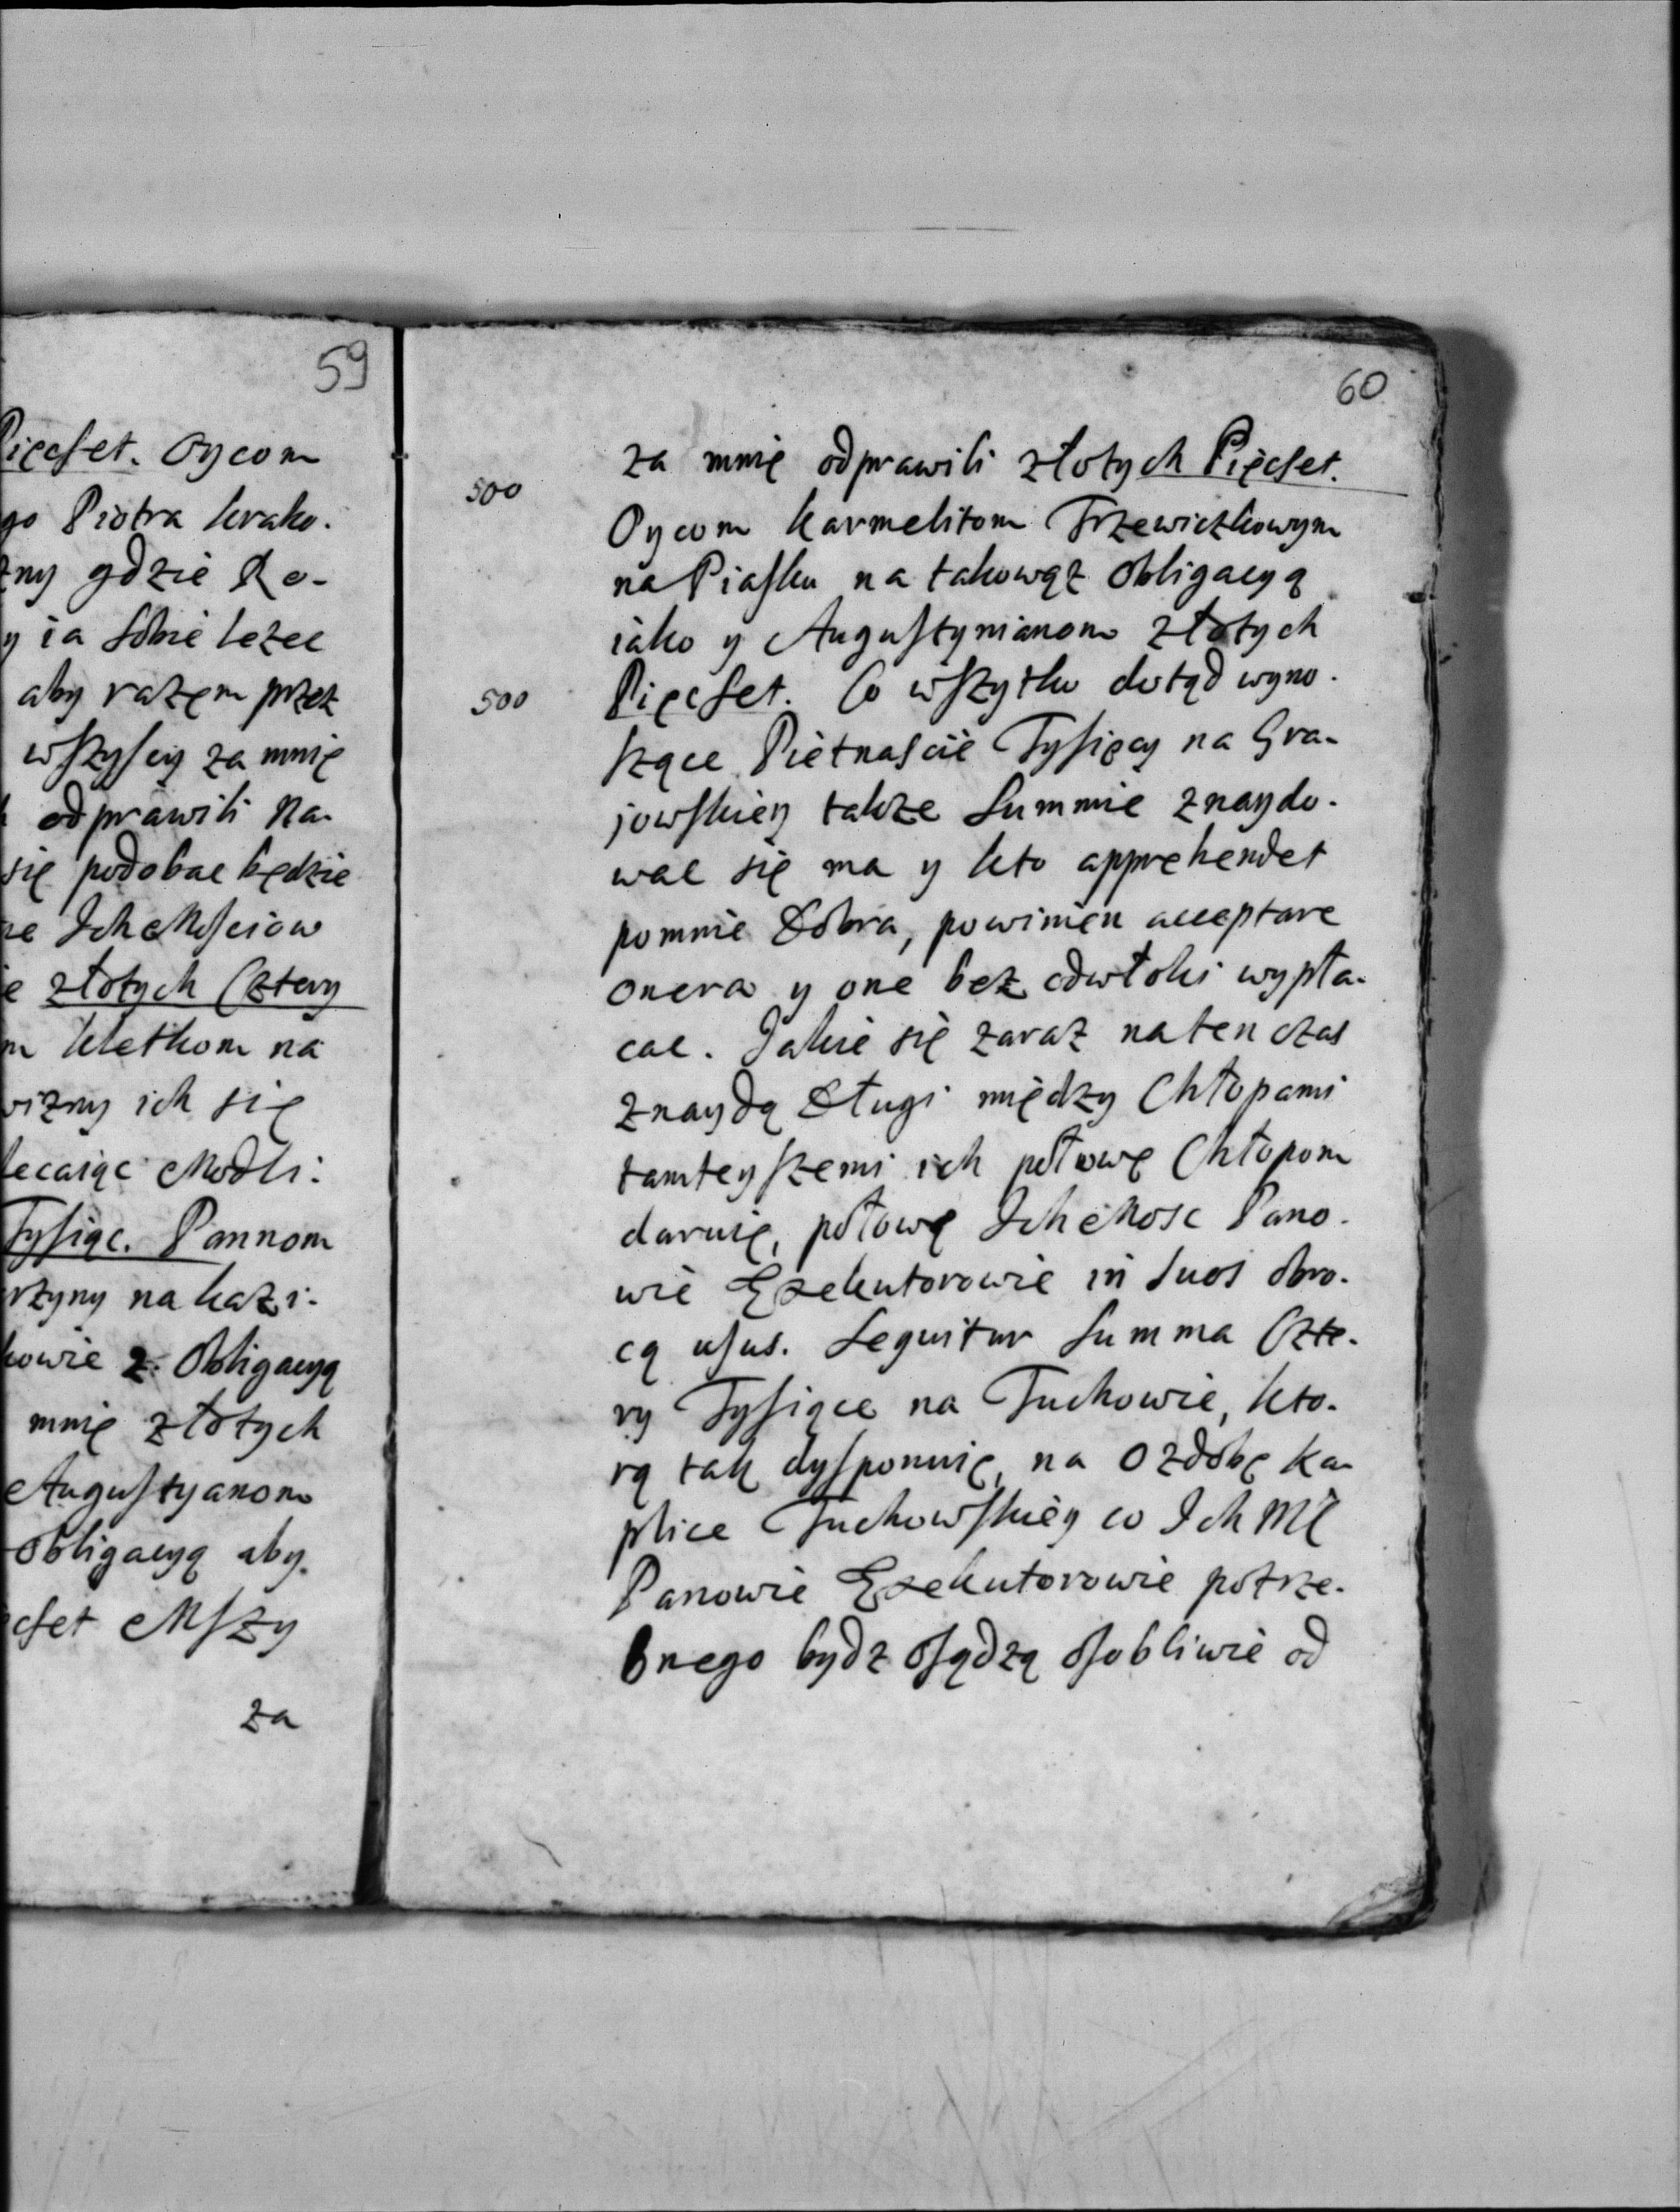 59
Pięcset. Oycom
go Piotra krako.
zny gdzie Ro-
y ia sobie leżec
aby razem przez
wszyscy za mnię
odprawili na.
się podobac będzie
ne Ich Mściow
e złotych Cztery
m kletkom na
wizny ich się
lecaiąc Modli:
Tysiąc. Pannom
rzyny na kazi.
kowie z. Obligacyą
mnię złotych
Augustyanom
Obligacyą aby.
cset Mszy
za
60
za mnię odprawili złotych Pięcset.
500
Oycom karmelitom Trzewiczkowym
na Piasku na takowąz Obligacyą
iako y Augustynianom złotych
500 Pięcset. Co wszytko dotąd wyno.
szące Piętnaście Tysięcy na Gra-
jowskiey takze Summie znaydo.
wac się ma y kto apprehendet
pomnie Dobra, powinien acceptare
onera y one bez odwłoki wypła.
cac. Jakie się zaraz na ten czas
znaydą Długi między Chłopami
tamteyszemi ich połowę Chłopom
daruię, połowę Ich Mosc Pano.
wie Exekutorowie in suos obro.
cą usus. Sequitur Summa Czte.
ry Tysiące na Tuchowie, kto.
rą tak dysponuię, na ozdobę ka-
plice Tuchowskiey co Ich Mc
Panowie Exekutorowie potrze.
bnego bydz osądzą osobliwie od